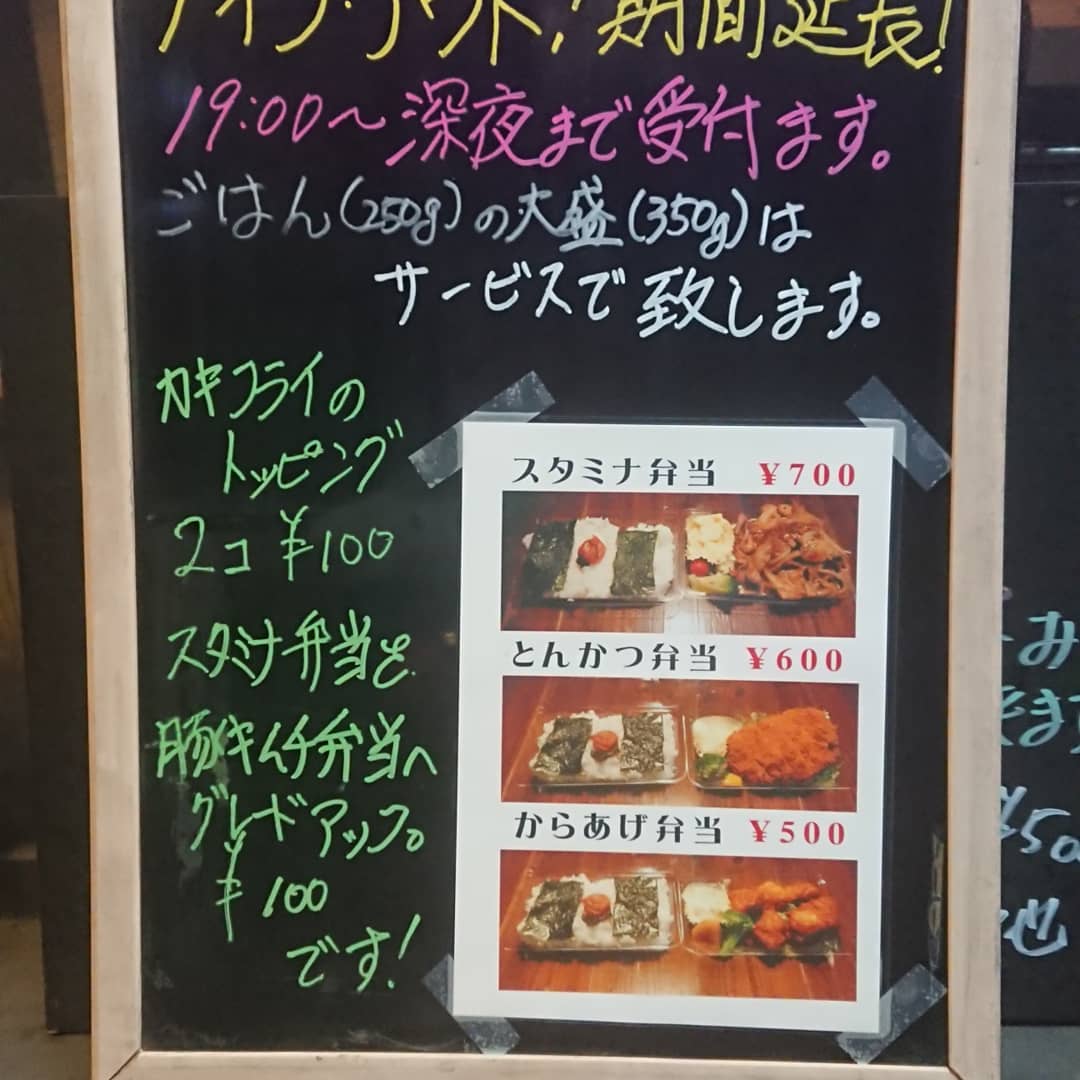 テイク・アウト！期間延長！
19:00〜深夜まで受付ます。
ごはん(250g)の大盛(350g)は
サービスで致します。
カキフライの
トッピング
2コ ¥100
スタミナ弁当を
豚キムチ弁当へ
グレードアップ。
¥100
です！
スタミナ弁当 ¥700
とんかつ弁当 ¥600
からあげ弁当 ¥500